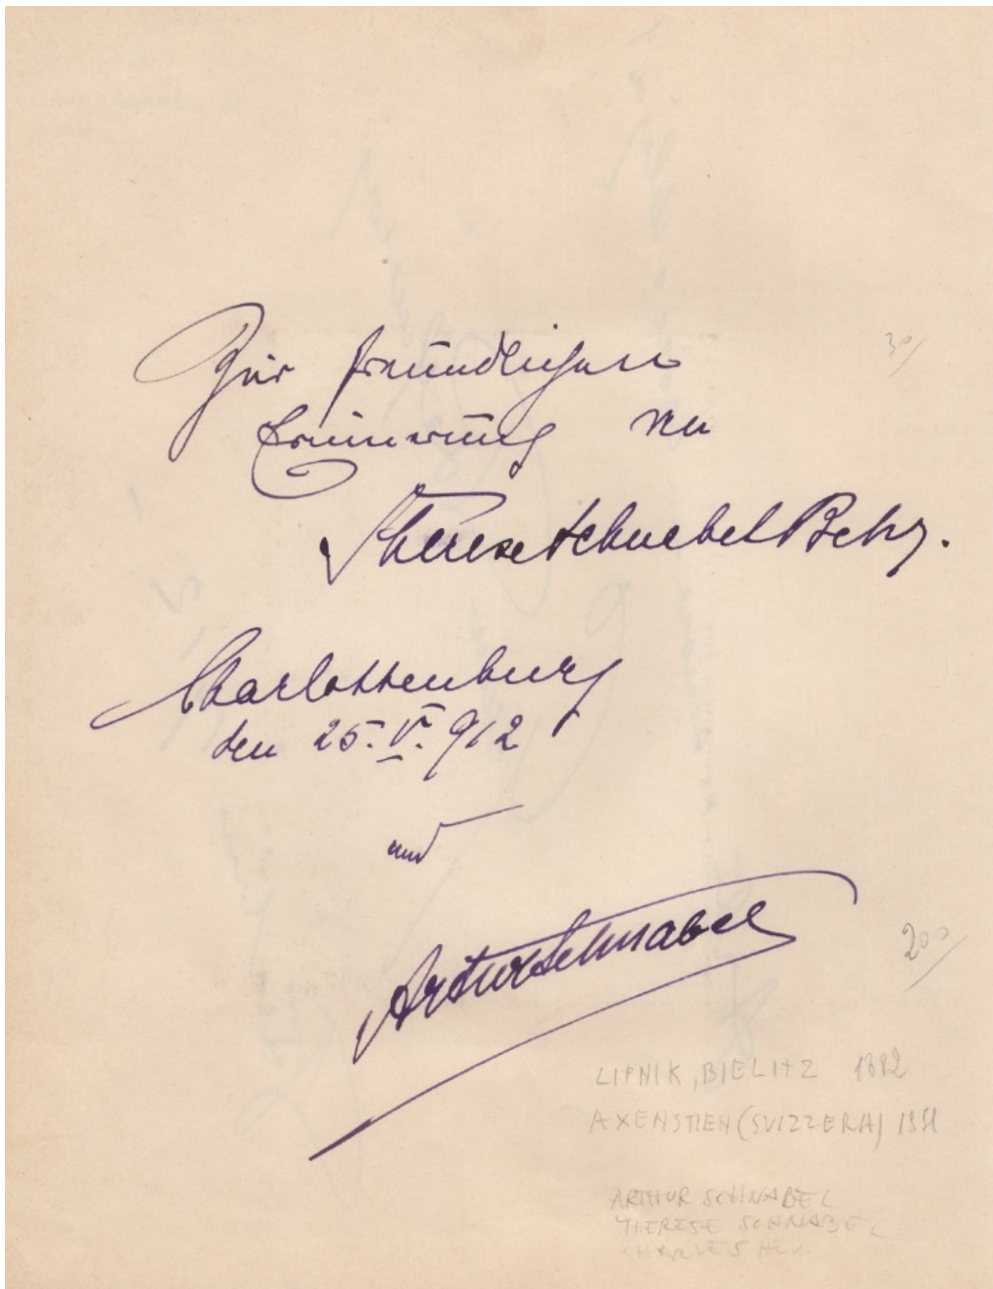 Zur freundlichen
30/
Erinnerung an
Therese Schnabel Behr.
Charlottenburg
den 25. V. 912
und
Artur Schnabel
200/
LIPNIK, BIELITZ 1882
AXENSTIEN (SVIZZERA) 1951
ARTHUR SCHNABEL
THERESE SCHNABEL